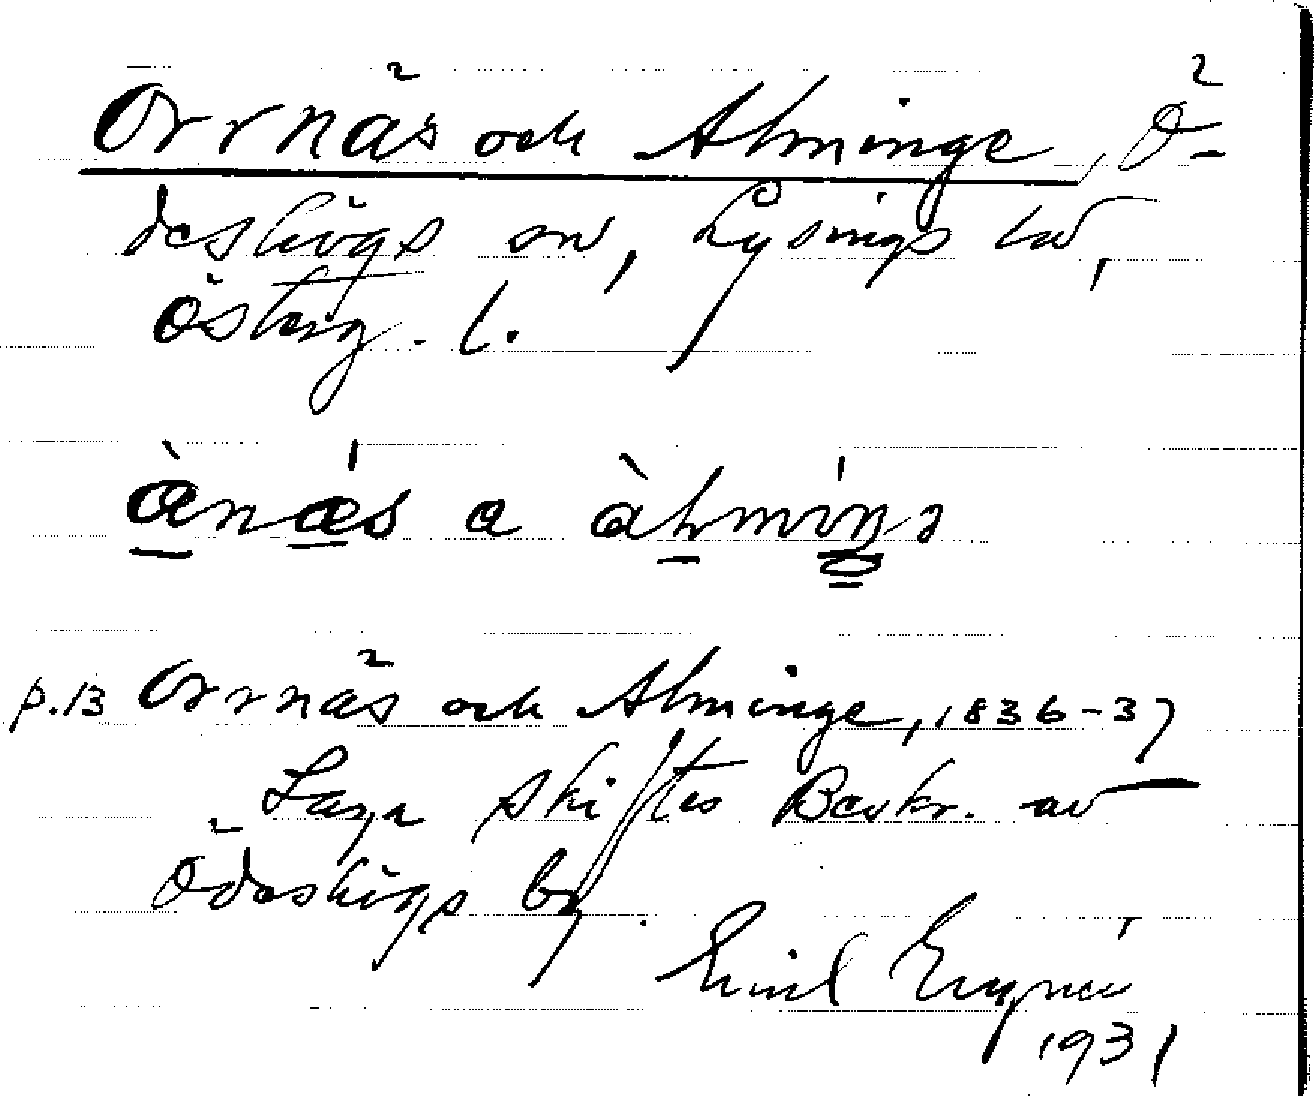 Orrnäs och Alminge, Ö-
deshögs sn, Lysings hd,
Österg. l.
p.13 Orrnäs och Alminge, 1836-37
Laga skiftes Beskr. av
Ödeshögs by.
Emil
1931